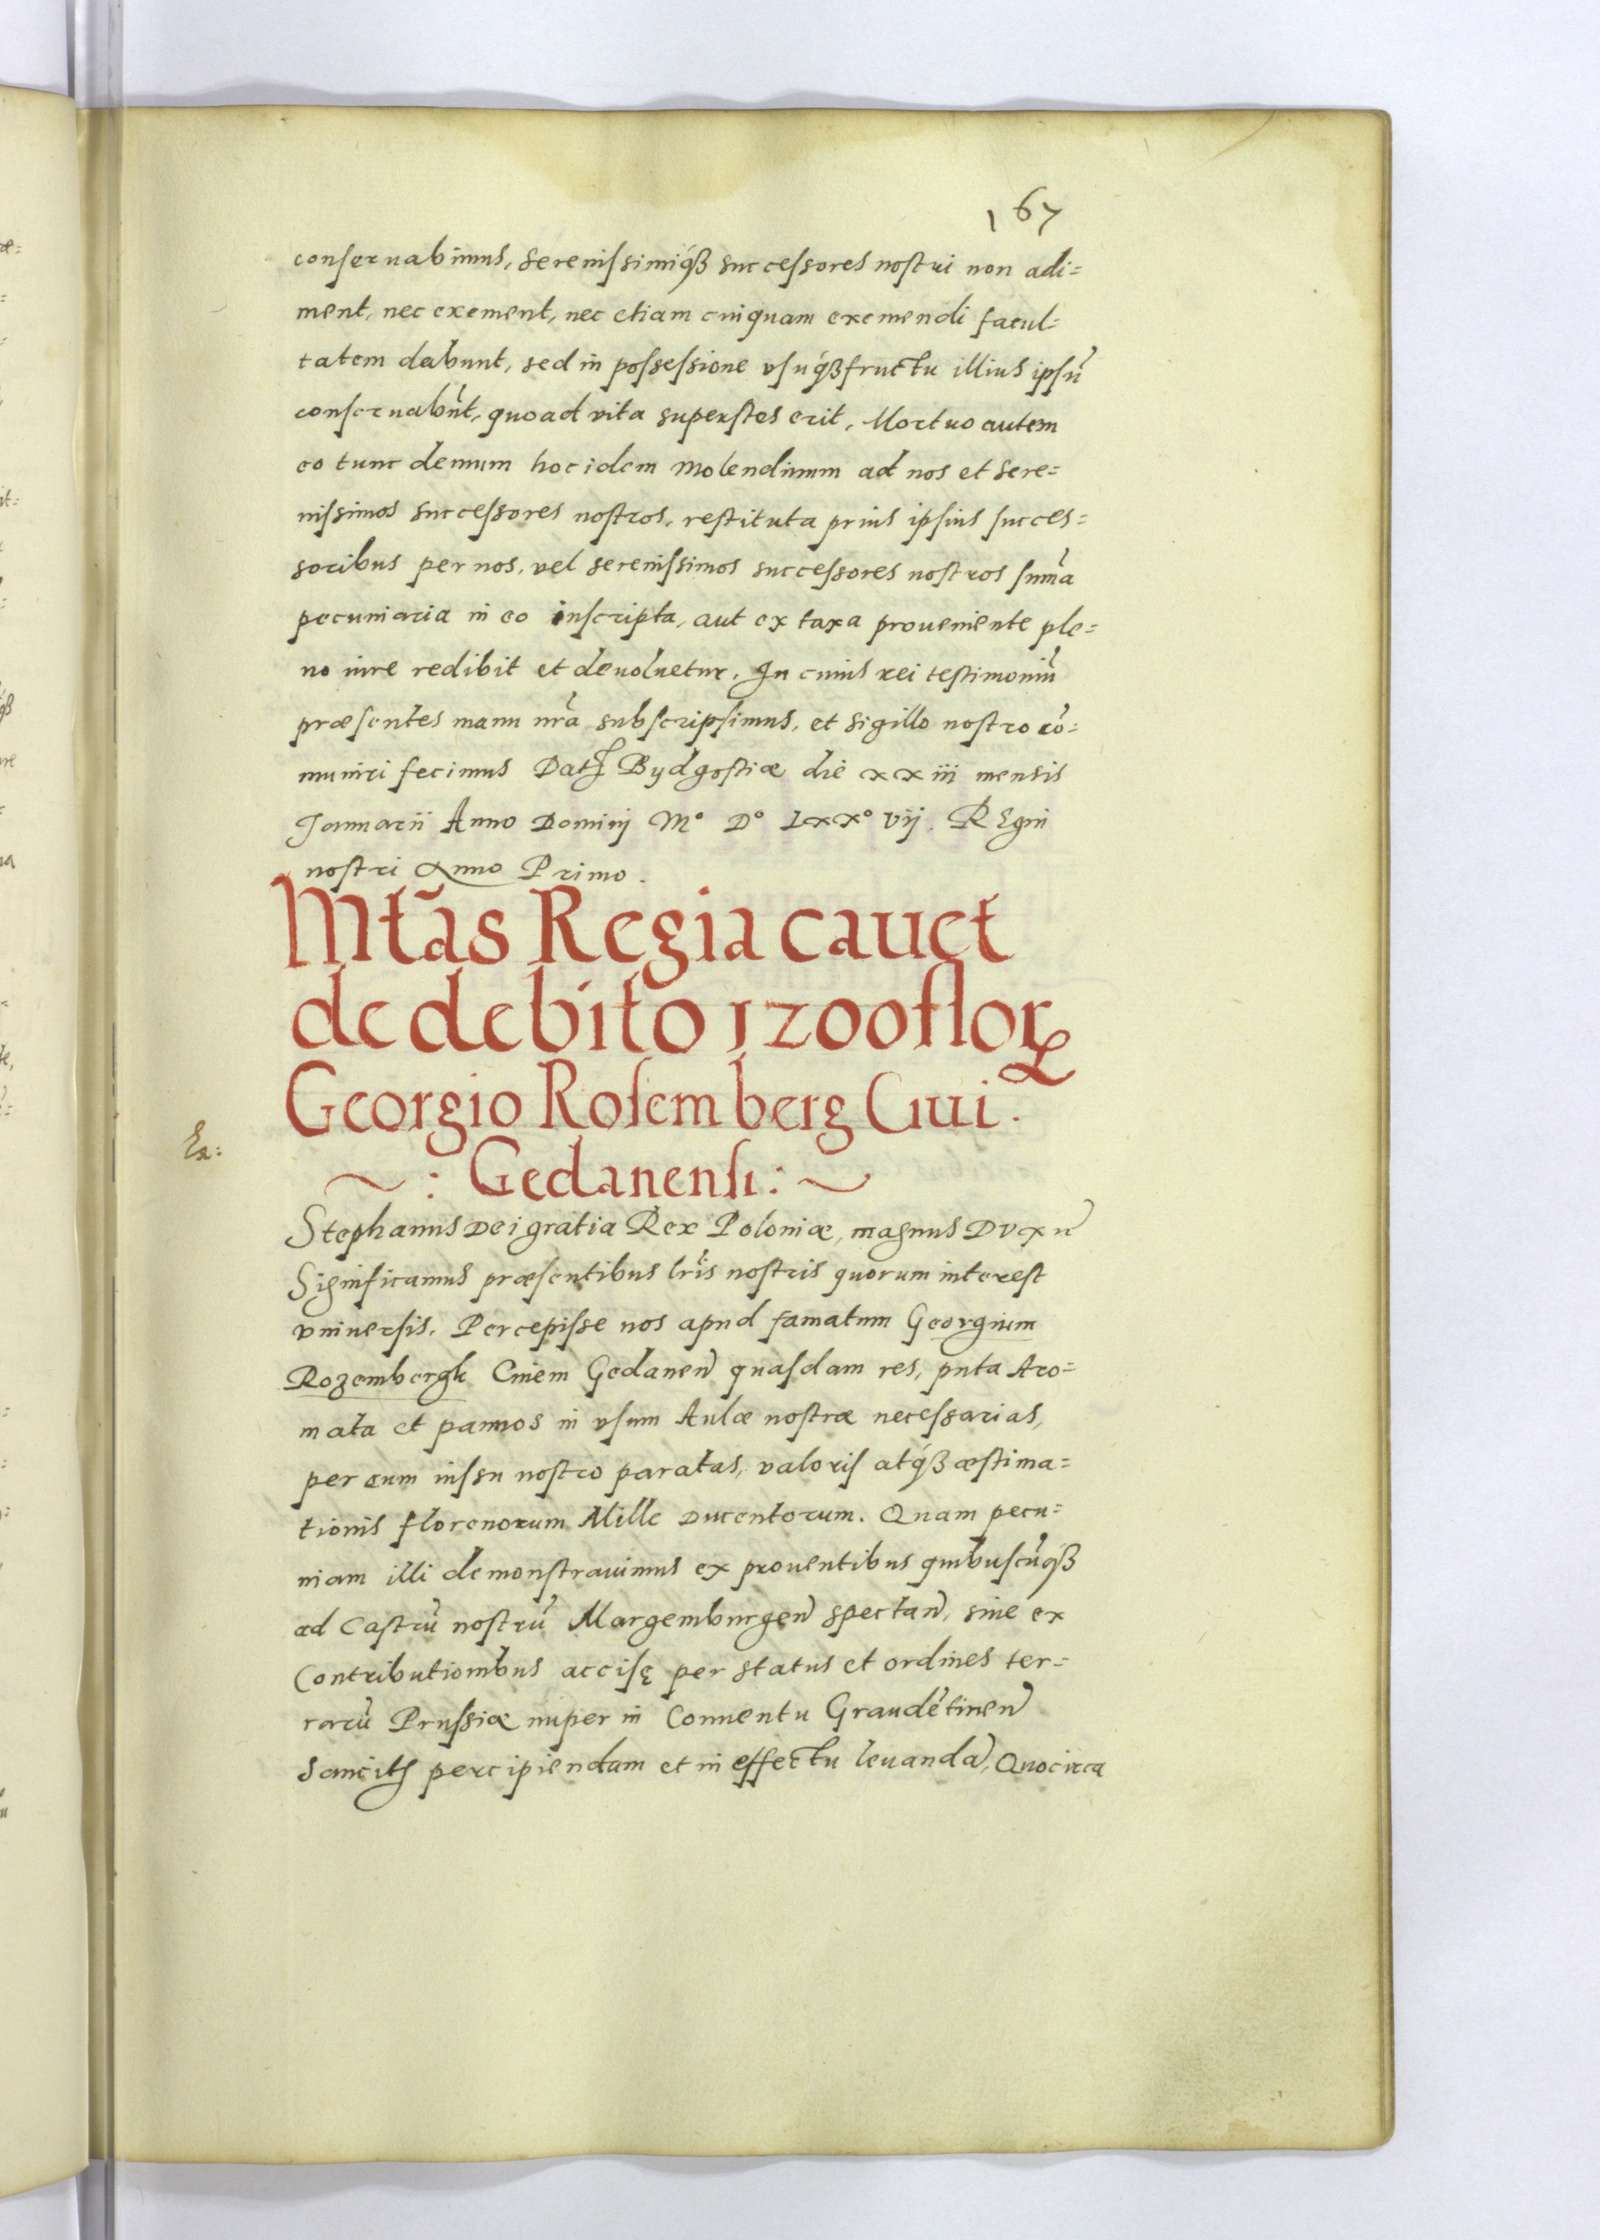 167
conseruabimus, serenissimiq́ȝ successores nostri non adi=
ment, nec exement, nec etiam cuiquam eximendi facul=
tatem dabunt, sed in possessione vsuq́ȝfructu illius ipsū
conseruabūt, quoad vita superstes erit, Mortuo autem
eo tunc demum hoc idem molendinum ad nos et sere=
nissimos successores nostros, restituta prius ipsius succes=
soribus per nos, vel serenissimos successores nostros sum̄a
pecuniaria in eo inscripta, aut ex taxa proueniente ple=
no iure redibit et deuoluetur. In cuius rei testimoniū
præsentes manu nrā subscripsimus, et sigillo nostro cō=
muniri fecimus Datʒ Bydgostiæ die xxiii mensis
Januarii Anno Dominj Mº Dº Lxxº vij. REgni
nostri Anno Primo.
Mtās Regia cauet
de debito 1200 florꝝ
Georgio Rosemberg Ciui.
~ : Gedanensi : ~
Ex:
Stephanus Dei gratia Rex Poloniæ, magnus Dux ꝛc̄
Significamus præsentibus lrīs nostris quorum interest
vniuersis. Percepisse nos apud famatum Georgium
Rozembergk Ciuem Gedanen̄ quasdam res, puta Aro=
mata et pannos in vsum Aulæ nostræ necessarias,
per eum iussu nostro paratas, valoris atq́ȝ æstima=
tionis florenorum Mille Ducentorum. Quam pecu=
niam illi demonstrauimus ex prouentibus quibuscūq́ȝ
ad Castrū nostrū Margemburgen̄ spectan̄, siue ex
Contributionibus accisę per status et ordines ter=
rarū Prussiæ nuper in Conuentu Graudētinen̄
Sancitʒ percipiendam et in effectu leuandā, Quocirca